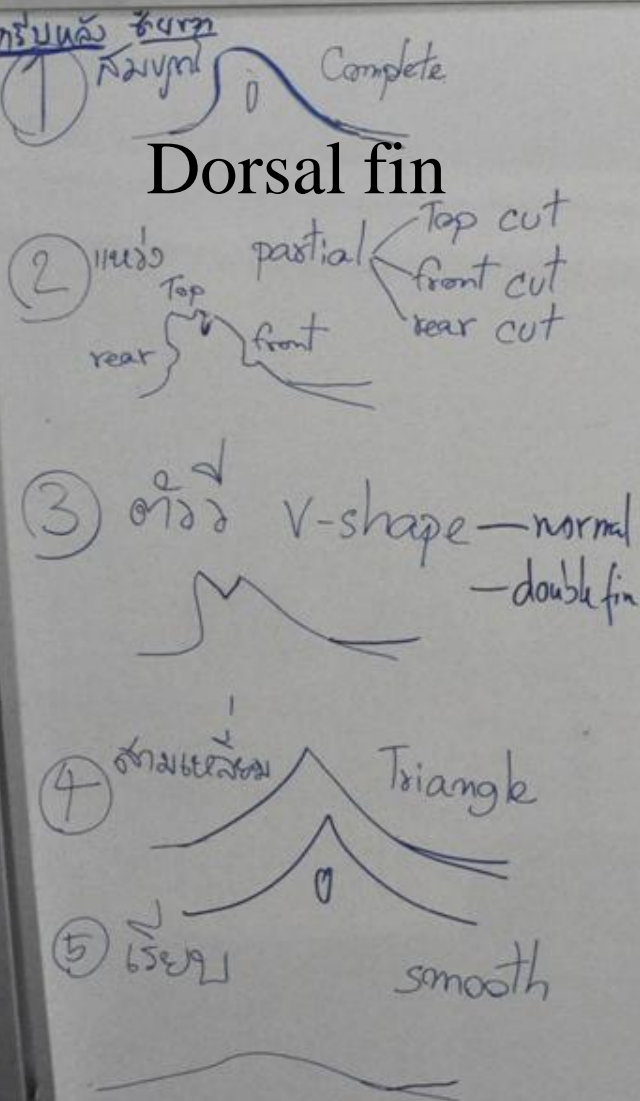 ครีบหลัง ซ้ายขวา
① สมบูรณ์ Complete
Dorsal fin
② แหว่ง partial Top cut
front cut
rear cut
Top
rear front
③ ตัววี V-shape — normal
— double fin
④ สามเหลี่ยม Triangle
⑤ เรียบ smooth